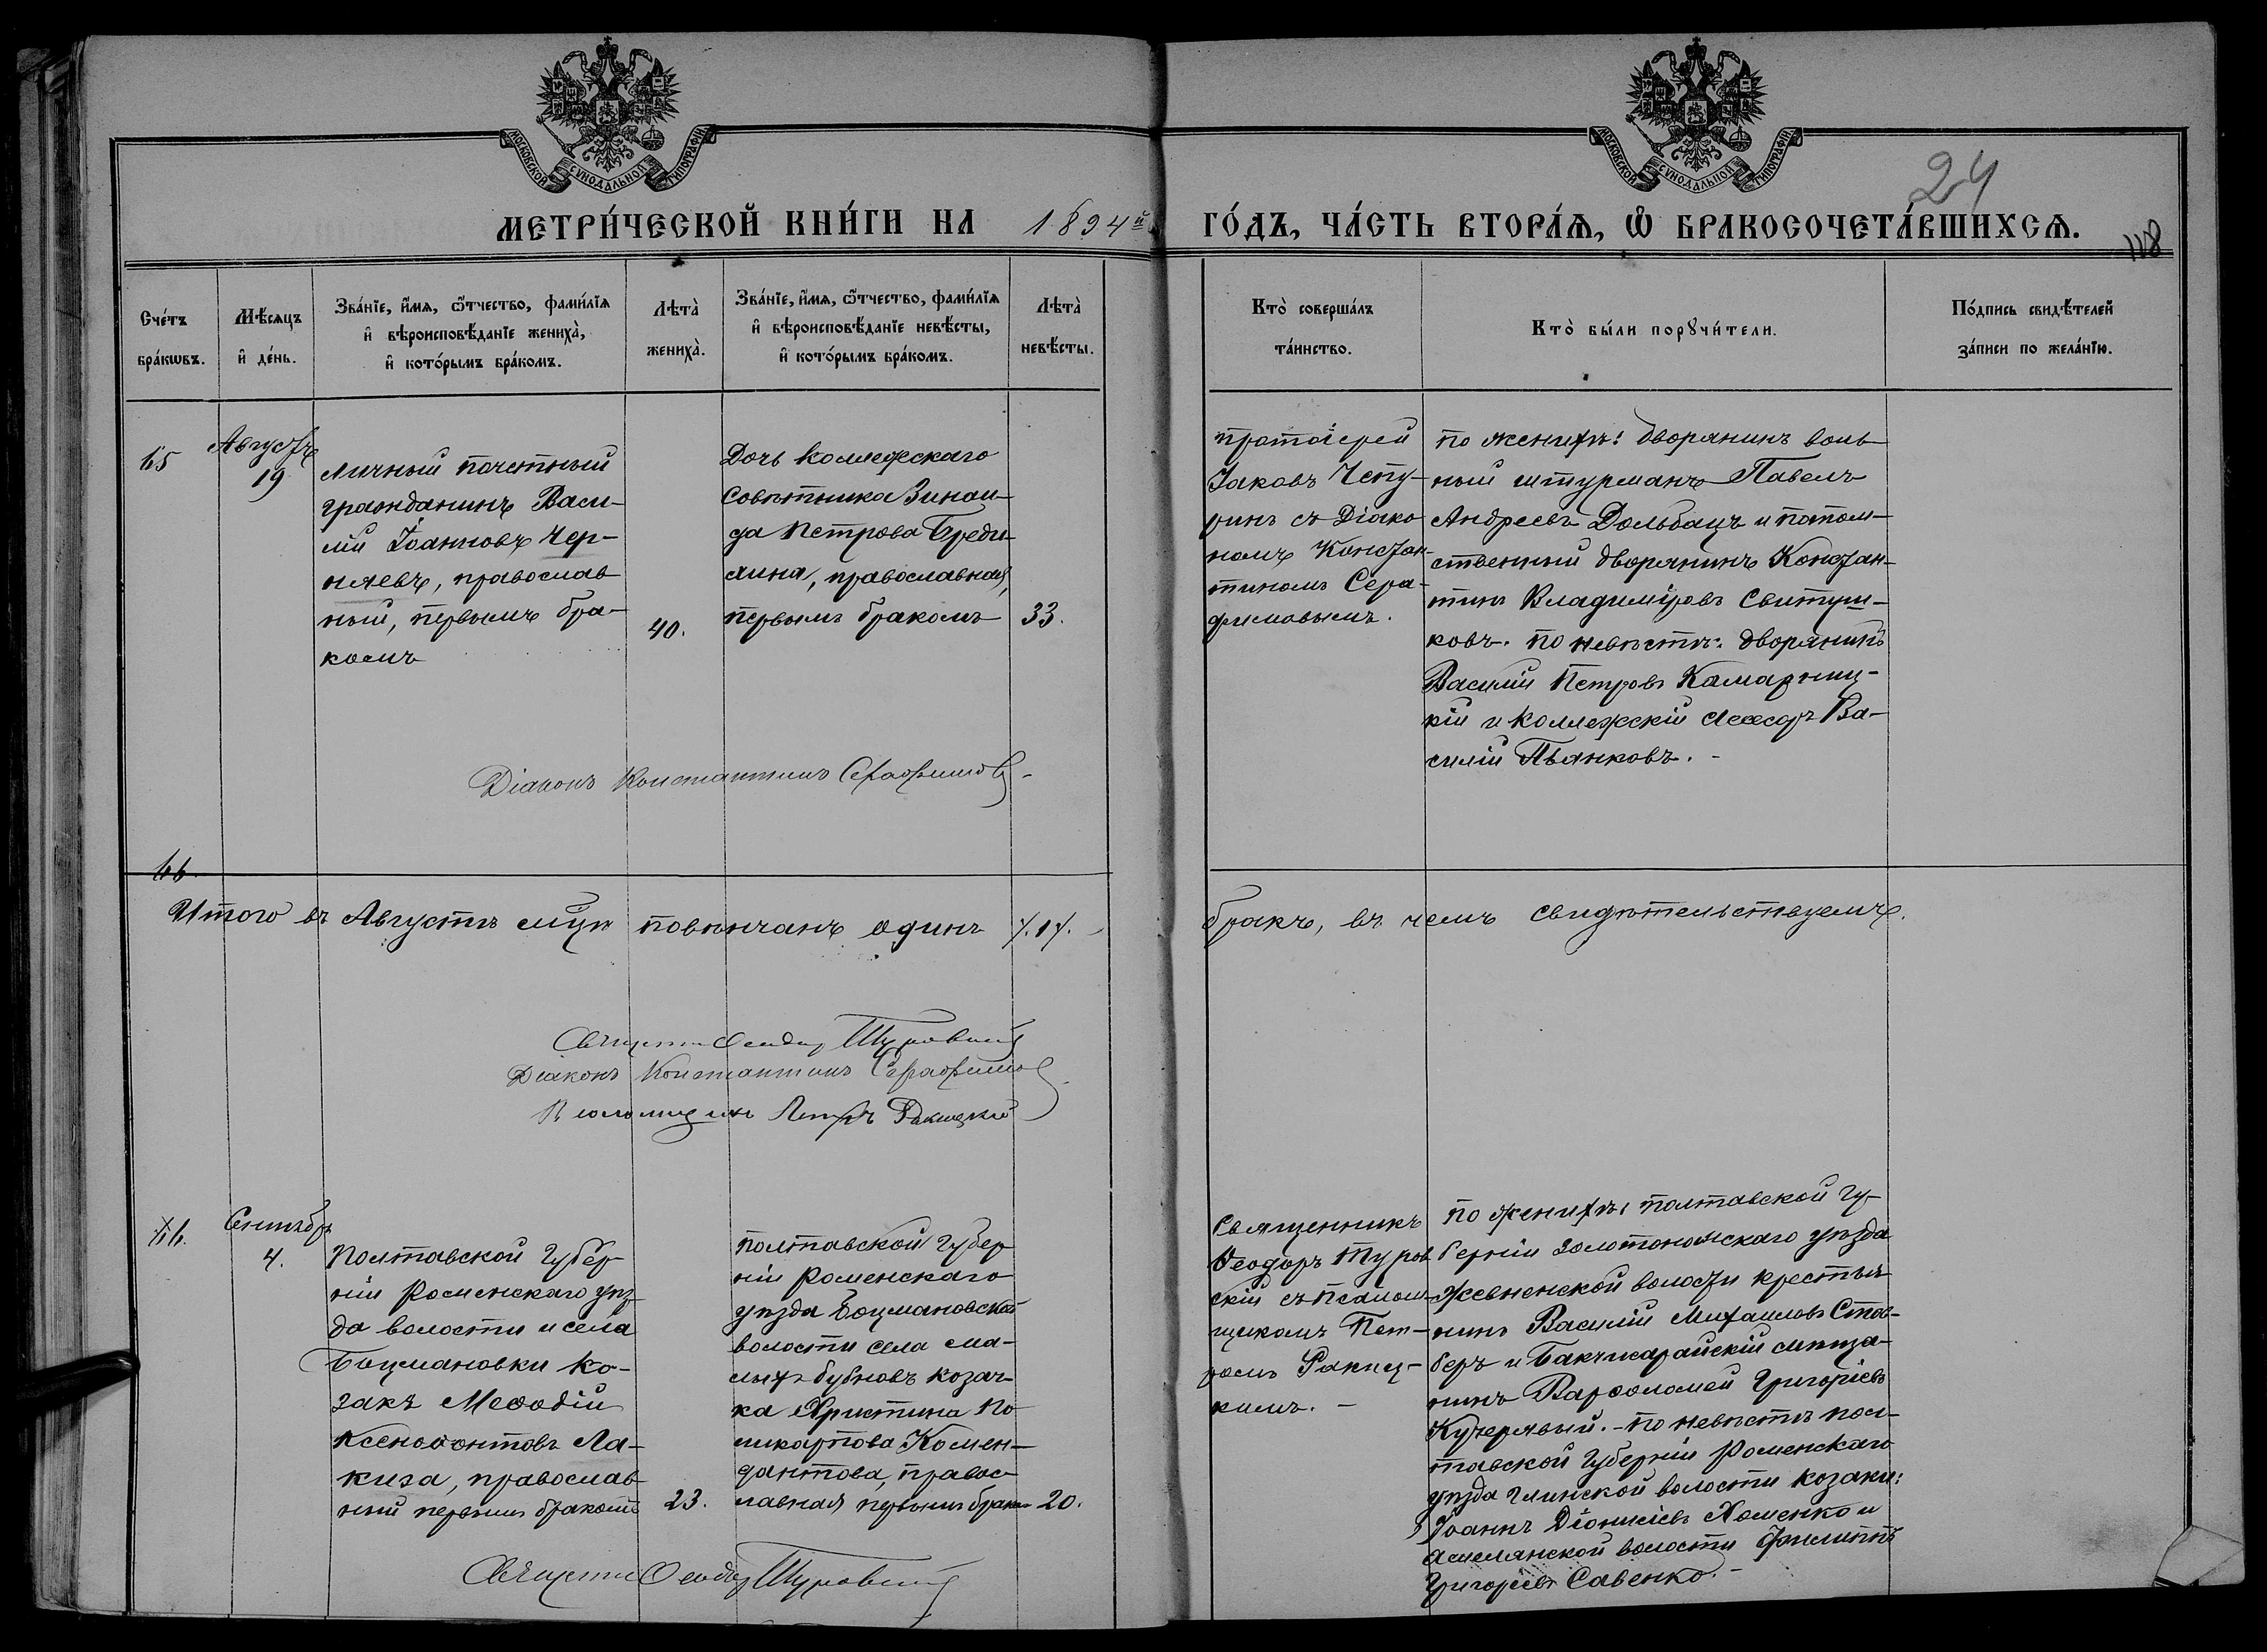 МОСКОВСКОЙ СѴНОДАЛЬНОЙ ТИПОГРАФІИ
МОСКОВСКОЙ СѴНОДАЛЬНОЙ ТИПОГРАФІИ
24
МЕТРИ́ЧЕСКОЙ КНИ́ГИ НА 1894й ГО́ДЪ, ЧА́СТЬ ВТОРА́Ѧ, Ѽ БРАКОСОЧЕТА́ВШИХСѦ.
118
Сче́тъ
бра́кѡвъ.
Мѣ́сѧцъ
и҆ де́нь.
Зва́нїе, и҆́мѧ, ѻ҆́тчество, фами́лїѧ
и҆ вѣроисповѣ́данїе жениха̀,
и҆ кото́рымъ бра́комъ.
Лѣта̀
жениха̀.
Зва́нїе, и҆́мѧ, ѻ҆́тчество, фами́лїѧ
и҆ вѣроисповѣ́данїе невѣ́сты,
и҆ кото́рымъ бра́комъ.
Лѣта̀
невѣ́сты.
Кто̀ соверша́лъ
та́инство.
Кто̀ бы́ли порꙋчи́тели.
По́дпись свидѣ́телей
за́писи по жела́нїю.
65
Августъ
19
Личный почетный
гражданинъ Васи-
лій Іоанновъ Чер-
няевъ, православ
ный, первымъ бра-
комъ
40.
Дочь коллежскаго
Совѣтника Зинаи-
да Петрова Бреди-
хина, православная,
первымъ бракомъ
33.
протоіерей
Іаковъ Чепу-
ринъ съ Діако
номъ Констан-
тиномъ Сера-
фимовымъ.
по женихѣ: дворянинъ воль
ный штурманъ Павелъ
Андреевъ Дольбацъ и потом-
ственный дворянинъ Констан-
тинъ Владиміровъ Свитуш-
ковъ. по невѣстѣ: дворянинъ
Василій Петровъ Камарниц-
кій и коллежскій Ассесоръ Ва-
силій Пьянковъ.
Діаконъ Константинъ Серафимовъ
66
Итого въ Августѣ м҃цѣ повѣнчанъ одинъ /.1/. бракъ, въ чемъ свидѣтельствуемъ.
Священникъ Ѳеодоръ Туровскій
Діаконъ Константинъ Серафимовъ
Псаломщикъ Петръ Ракицкій
66.
Сентябрь
4.
Полтавской Губер
ніи Роменскаго уѣз
да волости и села
Боцмановки ко-
закъ Меѳодій
Ксенофонтовъ Ла-
киза, православ
ный первымъ бракомъ
23.
полтавской Губер
ніи Роменскаго
уѣзда Боцмановской
волости села ма-
лыхъ бубновъ козач
ка Христина По
ликарпова Комен-
дантова, правос-
лавная первымъ бракомъ
20.
Священникъ
Ѳеодоръ Туров
скій съ псалом-
щикомъ Пет-
ромъ Ракиц-
кимъ.
по женихѣ: полтавской Гу-
берніи Золотоношскаго уѣзда
волости крестья
нинъ Василій Михаиловъ
и Бакчисарайскій мѣща-
нинъ Варѳоломей Григоріевъ
Кучерявый. - по невѣстѣ пол-
тавской Губерніи Роменскаго
уѣзда Глинской волости козаки:
Іоаннъ Діонисіевъ Хоменко и
Асмелянской волости Филиппъ
Григоріевъ Савенко.
Священникъ Ѳеодоръ Туровскій